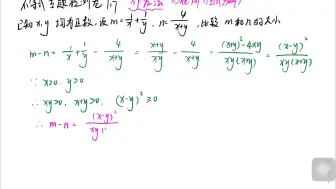 不等式专题检测卷 1.7
已知x,y 均为正数,设m=1/x+1/y, n=4/(x+y),比较 m和n的大小
m-n = 1/x+1/y - 4/(x+y) = (x+y)/xy - 4/(x+y) = ((x+y)²-4xy)/(xy(x+y)) = (x-y)²/(xy(x+y))
∵ x>0, y>0
∴ xy>0, x+y>0, (x-y)²≥0
∴ m-n = (x-y)²/(xy(